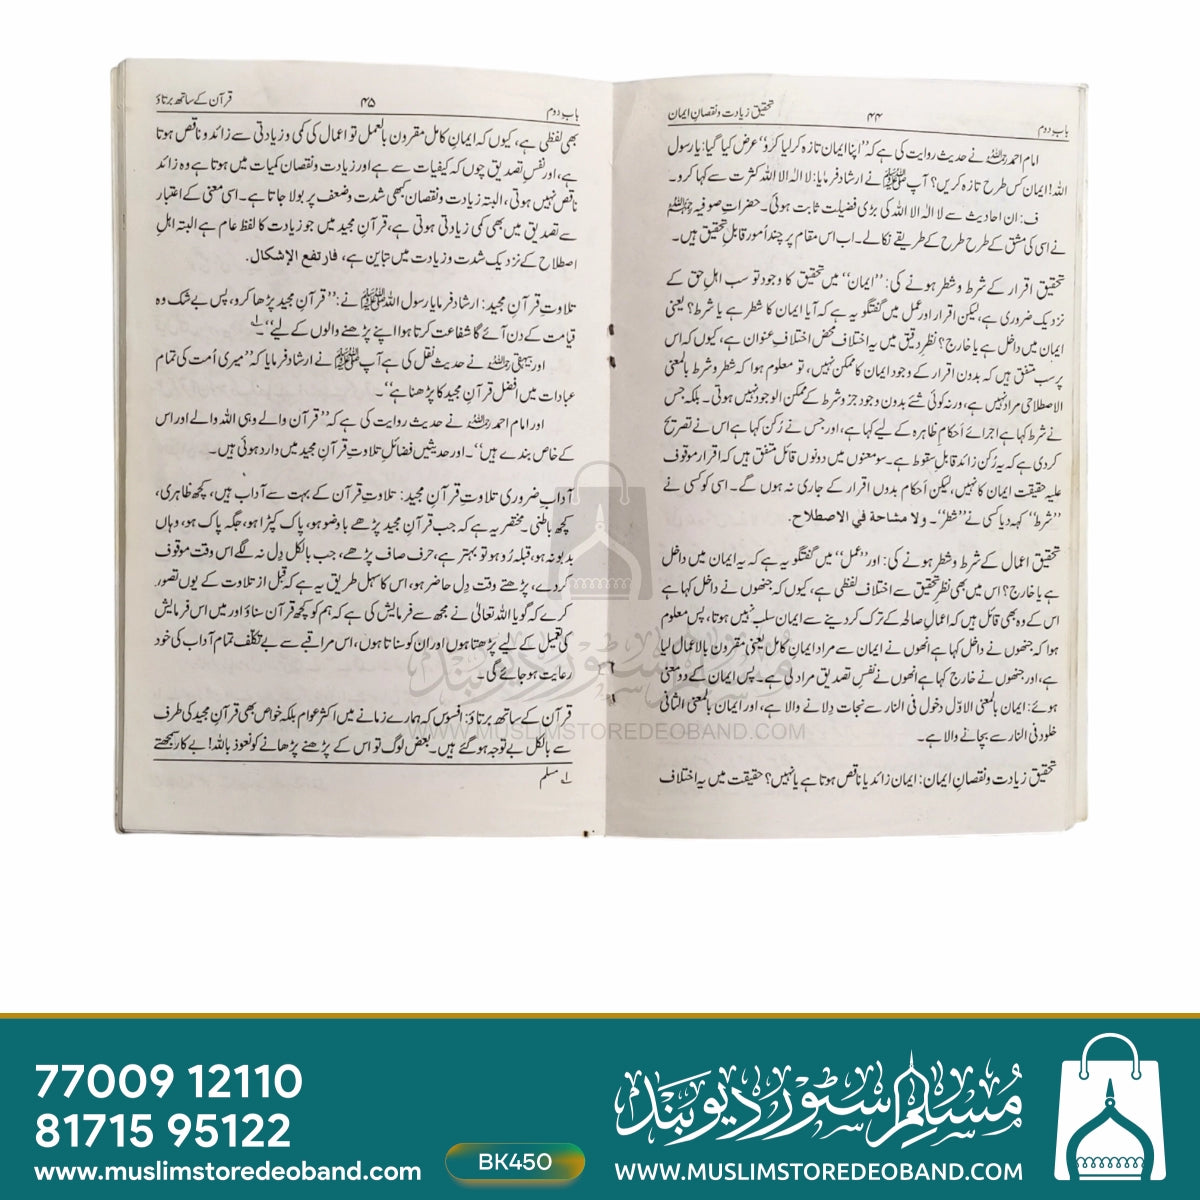 باب دوم ۴۴ تحقیق زیادت و نقصانِ ایمان
امام احمد رحمہ اللہ نے حدیث روایت کی ہے کہ ”اپنا ایمان تازہ کر لیا کرو“ عرض کیا گیا: یا رسول
اللہ! ایمان کس طرح تازہ کریں؟ آپ ﷺ نے ارشاد فرمایا: لا الہ الا اللہ کثرت سے کہا کرو۔
ف: ان احادیث سے لا الہ الا اللہ کی بڑی فضیلت ثابت ہوئی۔ حضراتِ صوفیہ رحمہم اللہ
نے اسی کی مشق کے طرح طرح کے طریقے نکالے۔ اب اس مقام پر چند اُمور قابلِ تحقیق ہیں۔
تحقیق اقرار کے شرط و شطر ہونے کی: ”ایمان“ میں تحقیق کا وجود تو سب اہلِ حق کے
نزدیک ضروری ہے، لیکن اقرار اور عمل میں گفتگو یہ ہے کہ آیا ایمان کا شطر ہے یا شرط؟ یعنی
ایمان میں داخل ہے یا خارج؟ نظرِ دقیق میں یہ اختلاف محض اختلافِ عنوان ہے، کیوں کہ اس
پر سب متفق ہیں کہ بدون اقرار کے وجود ایمان کا ممکن نہیں، تو معلوم ہوا کہ شطر و شرط بالمعنی
الاصطلاحی مراد نہیں ہے، ورنہ کوئی شئے بدون وجود جزو شرط کے ممکن الوجود نہیں ہوتی۔ بلکہ جس
نے شرط کہا ہے اجرائے اَحکامِ ظاہرہ کے لیے کہا ہے، اور جس نے رُکن کہا ہے اس نے تصریح
کر دی ہے کہ یہ رُکن زائد قابلِ سقوط ہے۔ سو معنوں میں دونوں قائل متفق ہیں کہ اقرار موقوف
علیہ حقیقت ایمان کا نہیں، لیکن اَحکام بدوں اقرار کے جاری نہ ہوں گے۔ اسی کو کسی نے
”شرط“ کہہ دیا کسی نے ”شطر“۔ ولا مشاحة في الاصطلاح.
تحقیق اعمال کے شرط و شطر ہونے کی: اور ”عمل“ میں گفتگو یہ ہے کہ یہ ایمان میں داخل
ہے یا خارج؟ اس میں بھی نظرِ تحقیق سے اختلاف لفظی ہے، کیوں کہ جنھوں نے داخل کہا ہے
اس کے وہ بھی قائل ہیں کہ اعمالِ صالحہ کے ترک کر دینے سے ایمان سلب نہیں ہوتا، پس معلوم
ہوا کہ جنھوں نے داخل کہا ہے انھوں نے ایمان سے مراد ایمانِ کامل یعنی مقرون بالاعمال لیا
ہے، اور جنھوں نے خارج کہا ہے انھوں نے نفسِ تصدیق مراد لی ہے۔ پس ایمان کے دو معنی
ہوئے: ایمان بالمعنی الاوّل دخول فی النار سے نجات دِلانے والا ہے، اور ایمان بالمعنی الثانی
خلود فی النار سے بچانے والا ہے۔
تحقیق زیادت و نقصانِ ایمان: ایمان زائد یا ناقص ہوتا ہے یا نہیں؟ حقیقت میں یہ اختلاف
باب دوم ۴۵ قرآن کے ساتھ برتاؤ
بھی لفظی ہے، کیوں کہ ایمانِ کامل مقرون بالعمل تو اعمال کی کمی و زیادتی سے زائد و ناقص ہوتا
ہے، اور نفسِ تصدیق چوں کہ کیفیات سے ہے اور زیادت و نقصان کمیات میں ہوتا ہے وہ زائد
ناقص نہیں ہوتی، البتہ زیادت و نقصان کبھی شدت و ضعف پر بولا جاتا ہے۔ اسی معنی کے اعتبار
سے تصدیق میں بھی کمی زیادتی ہوتی ہے، قرآنِ مجید میں جو زیادت کا لفظ عام ہے البتہ اہلِ
اصطلاح کے نزدیک شدت و زیادت میں تباین ہے، فارتفع الإشكال.
تلاوتِ قرآنِ مجید: ارشاد فرمایا رسول اللہ ﷺ نے: ”قرآنِ مجید پڑھا کرو، پس بے شک وہ
قیامت کے دن آئے گا شفاعت کرتا ہوا اپنے پڑھنے والوں کے لیے“۔ لے
اور بیہقی رحمہ اللہ نے حدیث نقل کی ہے آپ ﷺ نے ارشاد فرمایا کہ ”میری اُمت کی تمام
عبادات میں افضل قرآنِ مجید کا پڑھنا ہے“۔
اور امام احمد رحمہ اللہ نے حدیث روایت کی ہے کہ ”قرآن والے وہی اللہ والے اور اس
کے خاص بندے ہیں“۔ اور حدیثیں فضائلِ تلاوتِ قرآنِ مجید میں وارد ہوئی ہیں۔
آدابِ ضروری تلاوتِ قرآنِ مجید: تلاوتِ قرآن کے بہت سے آداب ہیں، کچھ ظاہری،
کچھ باطنی۔ مختصر یہ ہے کہ جب قرآنِ مجید پڑھے باوضو ہو، پاک کپڑا ہو، جگہ پاک ہو، وہاں
بدبو نہ ہو، قبلہ رُو ہو تو بہتر ہے، حرف صاف پڑھے، جب بالکل دِل نہ لگے اس وقت موقوف
کر دے، پڑھتے وقت دِل حاضر ہو، اس کا سہل طریق یہ ہے کہ قبل از تلاوت کے یوں تصور
کرے کہ گویا اللہ تعالیٰ نے مجھ سے فرمایش کی ہے کہ ہم کو کچھ قرآن سناؤ اور میں اس فرمایش
کی تعمیل کے لیے پڑھتا ہوں اور ان کو سناتا ہوں، اس مراقبے سے بے تکلّف تمام آداب کی خود
رعایت ہو جائے گی۔
قرآن کے ساتھ برتاؤ: افسوس کہ ہمارے زمانے میں اکثر عوام بلکہ خواص بھی قرآنِ مجید کی طرف
سے بالکل بے توجہ ہو گئے ہیں۔ بعض لوگ تو اس کے پڑھنے پڑھانے کو نعوذ باللہ! بے کار سمجھتے
لے مسلم
مسلم سٹور دیوبند
WWW.MUSLIMSTOREDEOBAND.COM
77009 12110
81715 95122
www.muslimstoredeoband.com
BK450
مسلم سٹور دیوبند
WWW.MUSLIMSTOREDEOBAND.COM